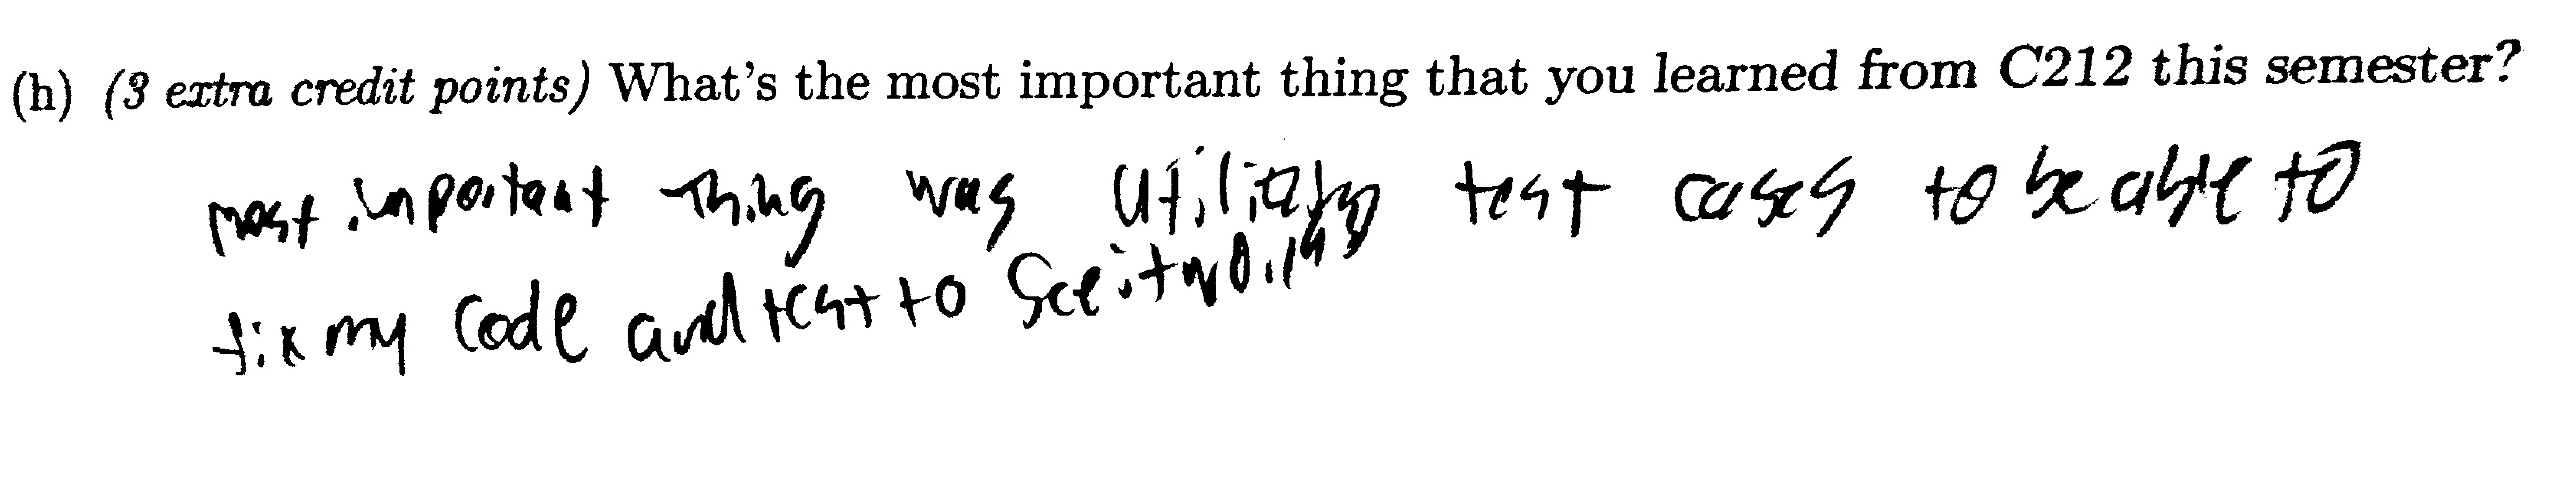 (h) (3 extra credit points) What's the most important thing that you learned from C212 this semester?
most important thing was test cases to be able to
fix my code and test to see it